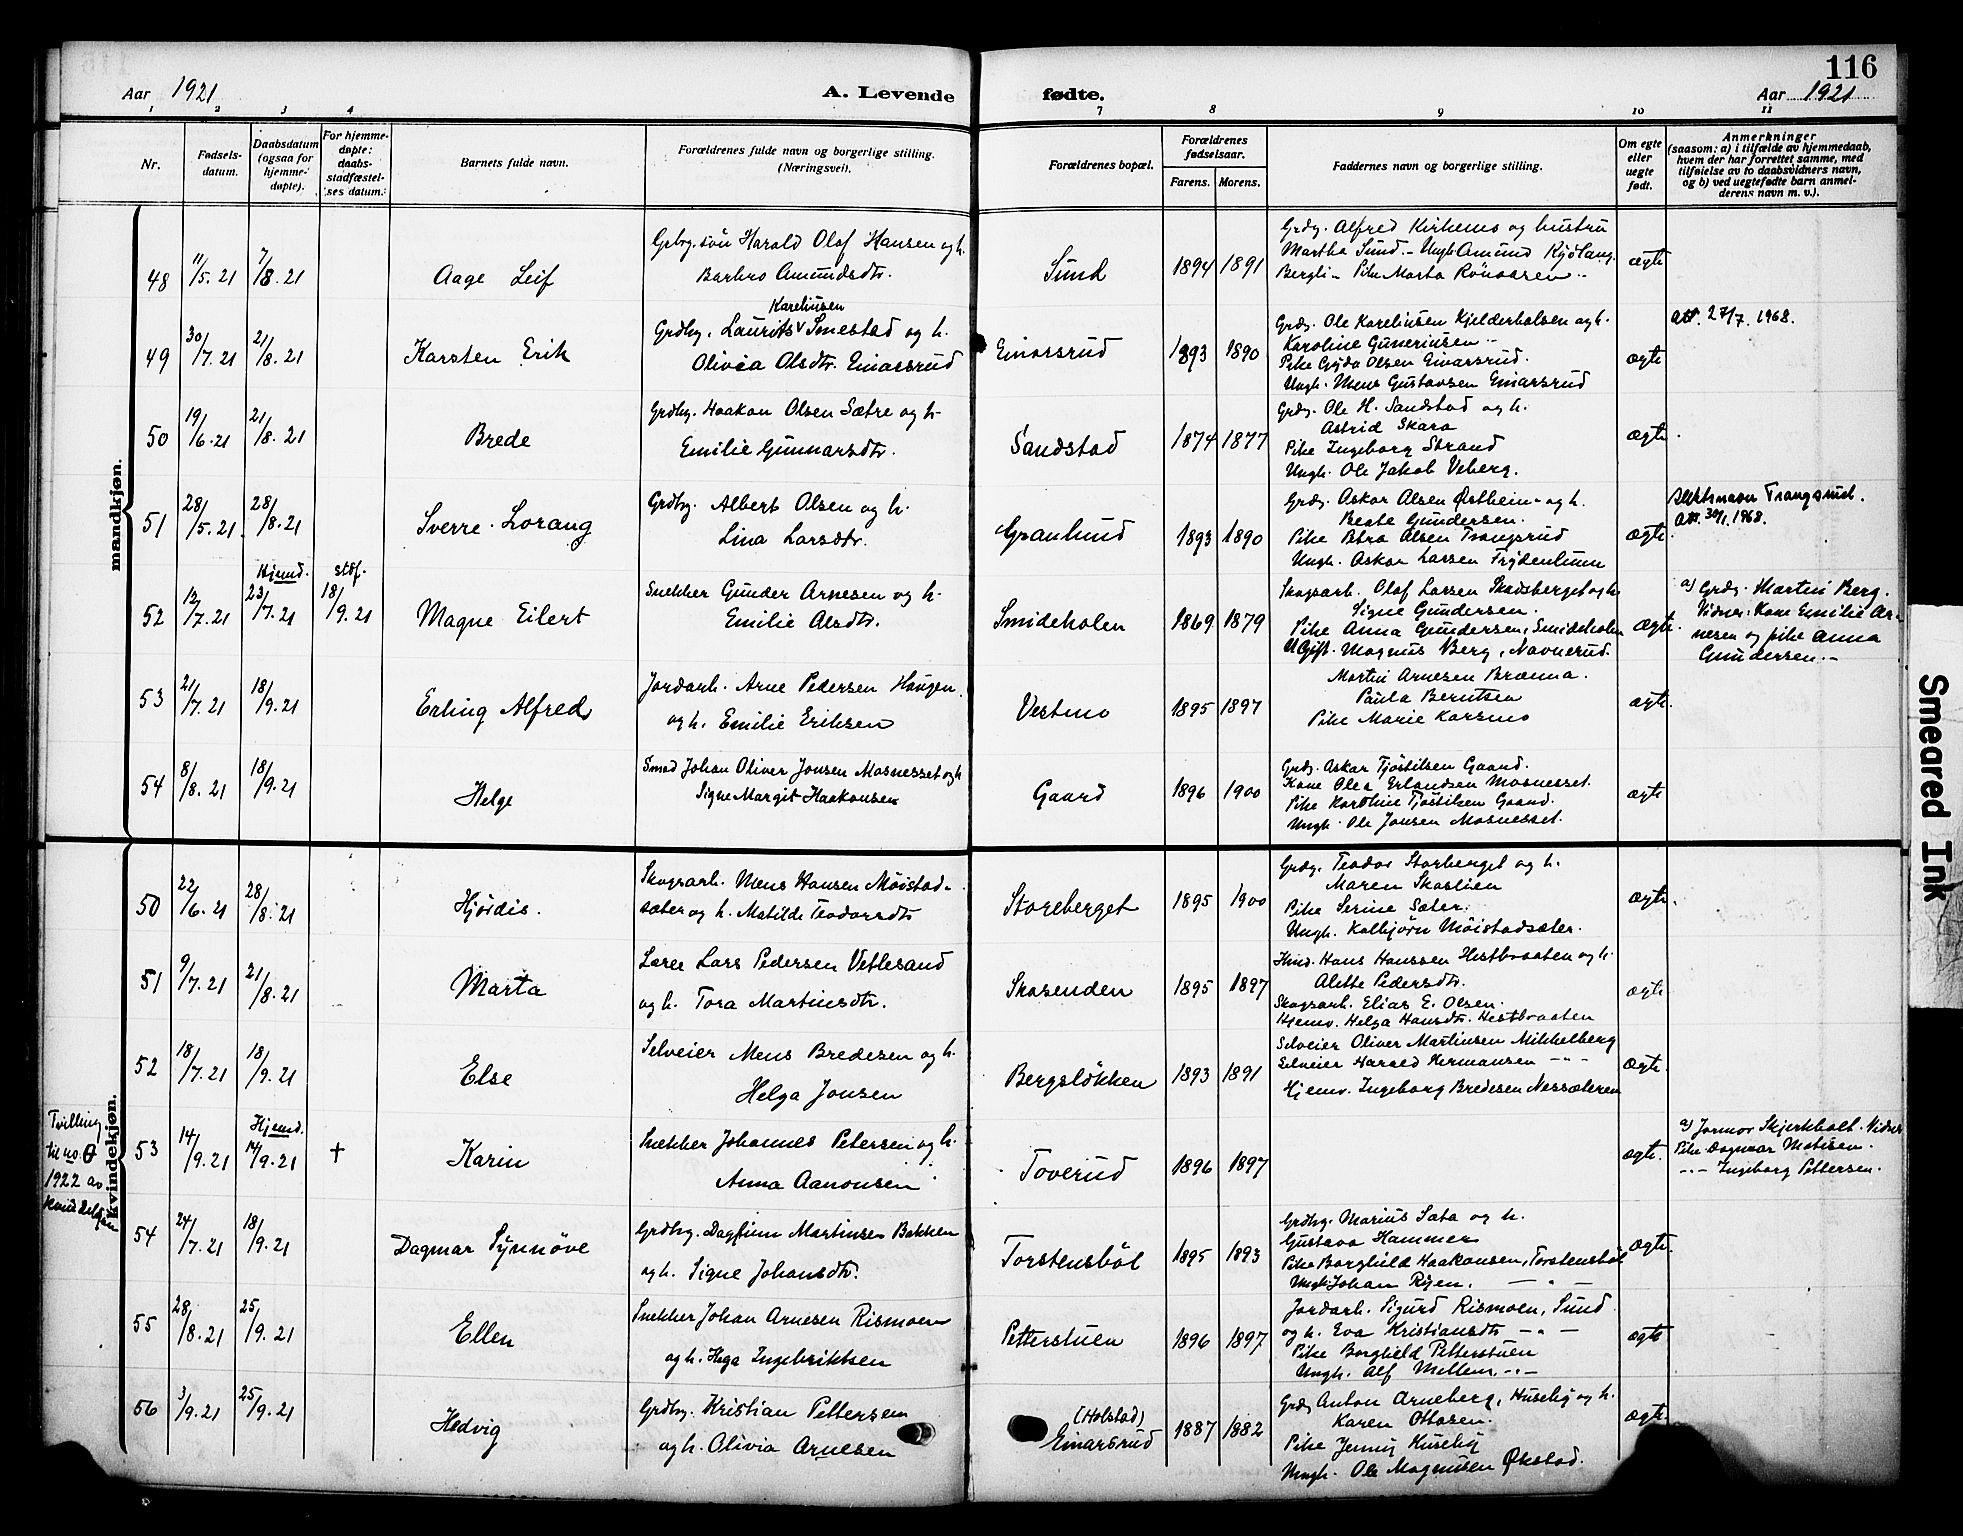 116
Aar 1921
A. Levende
fødte.
Aar 1921
1 2 3 4 7 8 9 10 11
Nr.
Fødsels-
datum.
Daabsdatum
(ogsaa for
hjemme-
døpte).
For hjemme-
døpte:
daabs-
stadfæstel-
ses datum.
Barnets fulde navn.
Forældrenes fulde navn og borgerlige stilling.
(Næringsvei).
Forældrenes bopæl.
Forældrenes
fødselsaar.
Farens. Morens.
Faddernes navn og borgerlige stilling.
Om egte
eller
uegte
født.
Anmerkninger
(saasom: a) i tilfælde av hjemmedaab,
hvem der har forrettet samme, med
tilføielse av to daabsvidners navn,
og b) ved uegtefødte barn anmel-
derens navn m. v.).
mandkjøn.
48 11/5. 21 7/8. 21 Aage Leif
Grbrg. søn Harald Olaf Hansen og h.
Barbro Amundsdtr.
Sund 1894 1891
Grdg. Alfred Kirkemo og hustru
Martha Sund. - Ungk. Amund
Bergli - Pike Marta
ægte
49 30/7. 21 21/8. 21 Karsten Erik
Karelinsen
Grdbg. Laurits Smestad og h.
Olivia Olsdtr. Einarsrud
Einarsrud 1893 1890
Grdg. Ole Karelinsen Kjelderholsen og h.
Karoline Gunerinsen -
Pike Gyda Olsen Einarsrud.
Ungk. Mens Gustavsen Einarsrud
ægte
att. 27/7. 1968.
50 19/6. 21 21/8. 21 Brede
Grdbg. Haakon Olsen Sætre og h.
Emilie Gunnarsdtr.
Sandstad 1874 1877
Grdg. Ole H. Sandstad og h.
Astrid Skara
Pike Ingeborg Strand
Ungk. Ole Jakob Veberg.
ægte
51 28/5. 21 28/8. 21 Sverre Lorang
Grdbg. Albert Olsen og h.
Lina Larsdtr.
Granlund 1893 1890
Grdg. Oskar Olsen Østheim og h.
Beate Gundersen.
Pike Petra Olsen Trangsrud
Ungk. Oskar Larsen Frydenlund
ægte
Slektsnavn Trangsrud.
att. 30/1. 1968.
52 12/7. 21 Hjemd. 23/7. 21 stdf. 18/9. 21 Magne Eilert
Snekker Gunder Arnesen og h.
Emilie Olsdtr.
Smideholen 1869 1879
Skogsarb. Olaf Larsen Skadsberget og h.
Signe Gundersen.
Pike Anna Gundersen, Smideholen
Ugift. Magnus Berg, Navnerud.
ægte.
a) Grdg. Martin Berg.
Vidner: Kone Emilie Ar-
nesen og pike Anna
Gundersen. -
53 21/7. 21 18/9. 21 Erling Alfred
Jordarb. Arne Pedersen Haugen.
og h. Emilie Eriksen
Vestmo 1895 1897
Martin Arnesen Brænna.
Paula Berntsen
Pike Marie Karsmo
ægte.
54 8/8. 21 18/9. 21 Helge
Smed Johan Oliver Jonsen Mosnesset og h
Signe Margit Haakonsen
Gaard 1896 1900
Grdg. Oskar Tjøstilsen Gaard.
Kone Olea Erlandsen Mosnesset.
Pike Karoline Tjøstilsen Gaard.
Ungk. Ole Jonsen Mosnesset.
ægte
kvindekjøn.
50 22/6. 21 28/8. 21 Hjördis.
Skogsarb. Mens Hansen Möistad-
sæter og h. Matilde Teodorsdtr
Storeberget 1895 1900
Grdg. Teodor Storberget og h.
Maren Skaslien
Pike Serine Sæter.
Ungk. Kolbjørn Möistadsæter.
ægte.
51 9/7. 21 21/8. 21 Marta
Lærer Lars Pedersen Vetlesand
og h. Tora Martinsdtr.
Skasenden 1895 1897
Hans Hanssen Hestbraaten og h.
Alette Pedersdtr.
Skogsarb. Elias E. Olsen.
Hjemv. Helga Hansdtr. Hestbraaten
ægte
52 18/7. 21 18/9. 21 Else
Selveier Mens Bredesen og h.
Helga Jonsen
Bergsløkken 1893 1891
Selveier Oliver Martinsen Mikkelberg
Selveier Harald Hermansen - " -
Hjemv. Ingeborg Bredesen Nessæteren
ægte.
Tvilling
til no. 0
1922 av
kvindekjøn
53 14/9. 21 Hjemd. 14/9. 21 † Karin
Snekker Johannes Petersen og h.
Anna Aanonsen
Toverud 1896 1897
ægte.
a) Jormor Skjerkholt. Vidner
Pike Dagmar Matisen.
- " - Ingeborg Pettersen.
54 24/7. 21 18/9. 21 Dagmar Synnöve
Grdbg. Dagfinn Martinsen Bakken
og h. Signe Johansdtr.
Torstensböl 1895 1893
Grdbg. Marius Sata og h.
Gustava Hammer
Pike Borghild Haakonsen, Torstensböl
Ungk. Johan Ryen. - " -
ægte.
55 28/8. 21 25/9. 21 Ellen
Snekker Johan Arnesen Rismoen
og h. Helga Ingebriktsen
Petterstuen 1896 1897
Jordarb. Sigurd Rismoen, Sund
og h. Eva Kristiansdtr - " -
Pike Borghild Petterstuen
Ungk. Alf Mellem. - " -
ægte
56 3/9. 21 25/9. 21 Hedvig
Grdbg. Kristian Pettersen
og h. Olivia Arnesen
(Holstad)
Einarsrud 1887 1882
Grdg Anton Arneberg, Huseby og h.
Karen Ottosen.
Pike Jenny Huseby
Ungk. Ole Magnusen Økstad.
ægte.
Smeared Ink